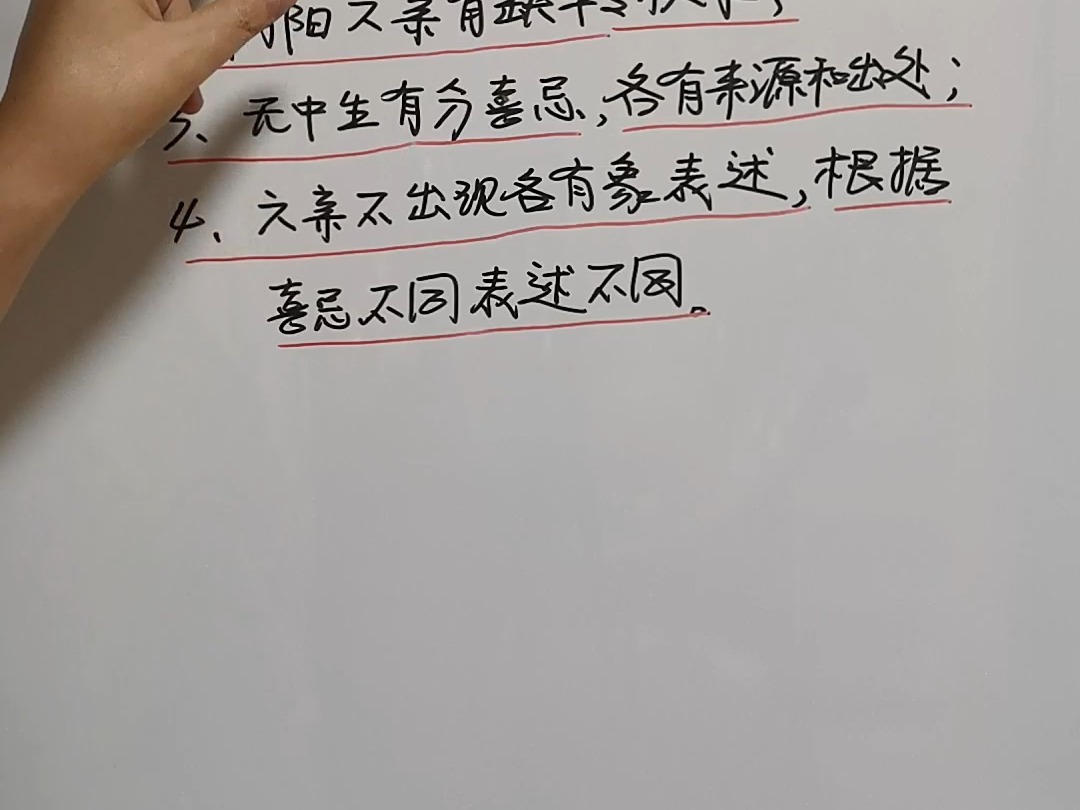 阳六亲有缺
3、无中生有分喜忌,各有来源和出处;
4、六亲不出现各有象表述,根据
喜忌不同表述不同。